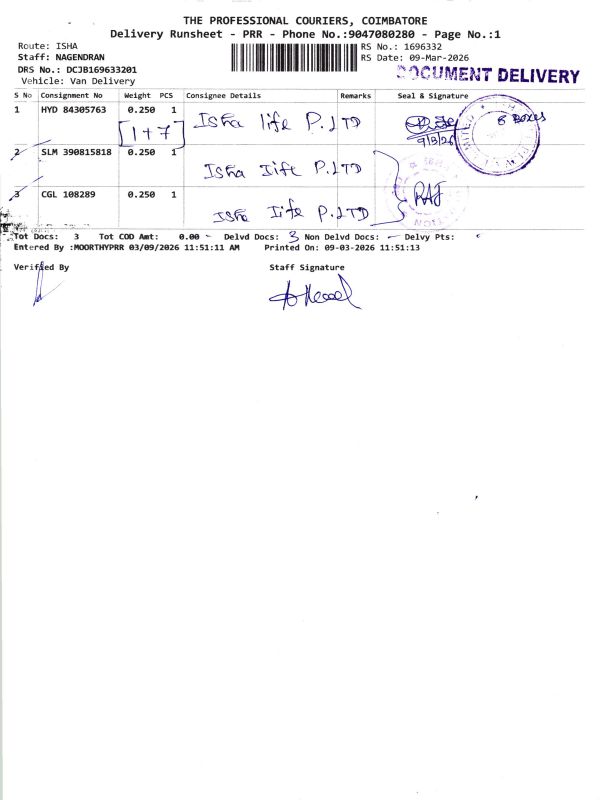 THE PROFESSIONAL COURIERS, COIMBATORE
Delivery Runsheet - PRR - Phone No.:9047080280 - Page No.:1
Route: ISHA
RS No.: 1696332
Staff: NAGENDRAN
RS Date: 09-Mar-2026
DRS No.: DCJB169633201
DOCUMENT DELIVERY
Vehicle: Van Delivery
S No Consignment No Weight PCS Consignee Details Remarks Seal & Signature
1 HYD 84305763 0.250 1 Isha life P.LTD 8 BOXES
[1+7] 9/3/26
2 SLM 390815818 0.250 1 Isha life P.LTD
3 CGL 108289 0.250 1 Isha life P.LTD RAJ
Tot Docs: 3 Tot COD Amt: 0.00 - Delvd Docs: 3 Non Delvd Docs: - Delvy Pts:
Entered By :MOORTHYPRR 03/09/2026 11:51:11 AM Printed On: 09-03-2026 11:51:13
Verified By Staff Signature